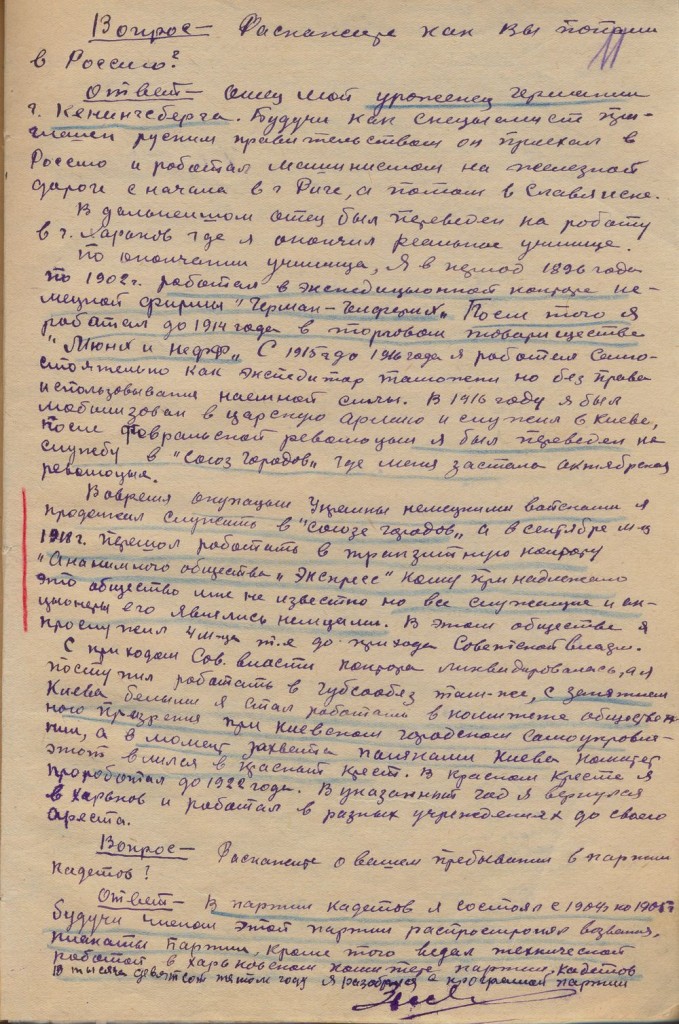 11
Вопрос – Раскажите как Вы попали
в Россию?
Ответ – Отец мой уроженец Германии
г. Кенингсберга. Будучи как специалист при-
глашен руским правительством он приехал в
Россию и работал машинистом на железной
дороге сначала в г Риге, а потом в Славянске.
В дальнейшом отец был переведен на работу
в г. Харьков где я окончил реальное училище.
По окончании училища, я в период 1896 года
по 1902 г. работал в экспедиционной конторе не-
мецкой фирмы "Герман-
После того я
работал до 1914 года в торговом товариществе
"Мюнх и Нефф" С 1915 г до 1916 года я работал само-
стоятельно как экспедитор таможени но без права
использовывания наемной силы. В 1916 году я был
мобилизован в царскую армию и служил в Киеве,
после февральской революции я был переведен на
службу в "Союз городов" где меня застала октябрская
революция.
Вовремя окупации Украины немецкими войсками я
продолжал служить в "Союзе городов" а в сентябре м-це
1918 г. перешол работать в транзитную контору
"Ананимного общества "Экспресс" кому принадлежало
это общество мне не известно но все служащие и ак-
ционеры его являлись немцами. В этом обществе я
прослужил 4 м-ца т.е до прихода Советской власти.
С приходом Сов. власти контора ликвидировалась, а я
поступил работать в Губсообяз там-же, с занятием
Киева белыми я стал работать в комитете обществен-
ного презрения при Киевском городском самоуправле-
нии, а в момент захвата поляками Киева комитет
этот влился в Красный крест. В Красном Кресте я
проработал до 1922 года. В указанный год я вернулся
в Харьков и работал в разных учреждениях до своего
ареста.
Вопрос – Раскажите о вашем пребывании в партии
кадетов?
Ответ – В партии кадетов я состоял с 1904 г по 1905 г
будучи членом этой партии распространял воззвания,
плакаты партии, кроме того ведал технической
работой в Харьковском комитете партии кадетов
В тысяча девятсот пятом году я разобрался с програмой партии